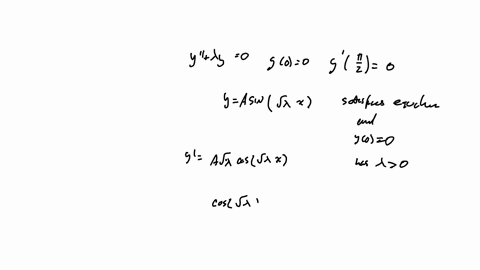 y'' + λy = 0 y(0) = 0 y'(π/2) = 0
y = A sin(√λ x) satisfies equation
and
y(0) = 0
y' = A√λ cos(√λ x) has λ > 0
cos(√λ